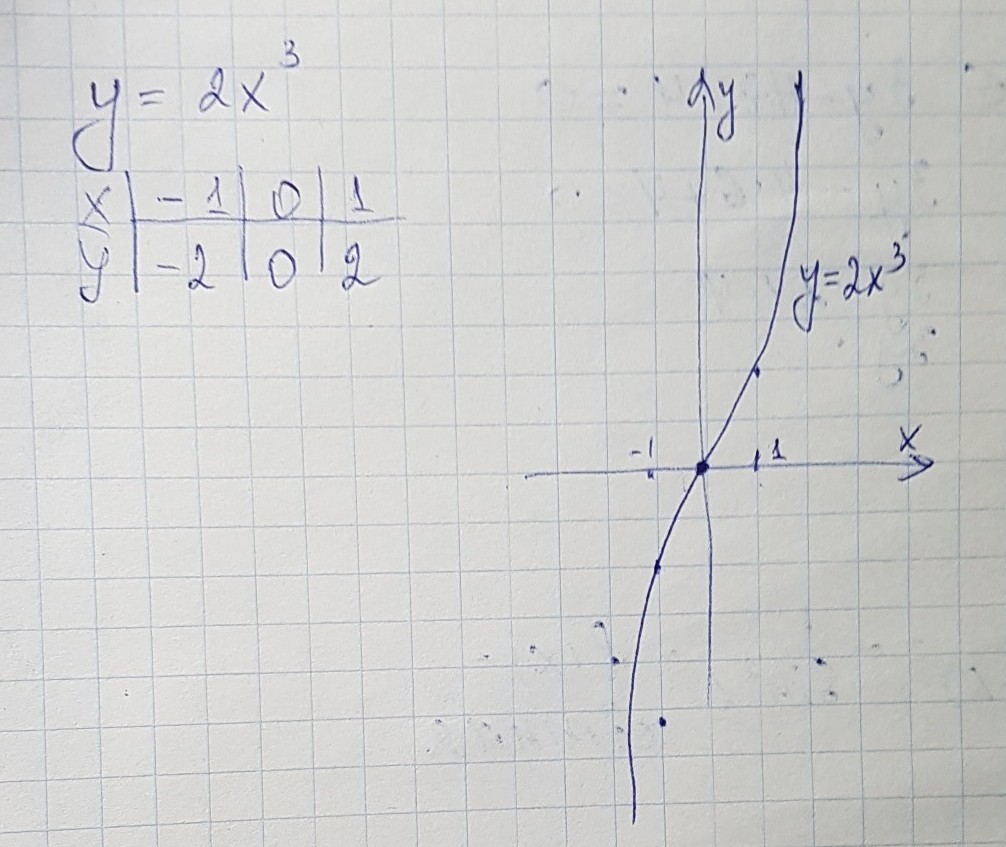 y = 2x³
x | -1 | 0 | 1
y | -2 | 0 | 2
y
y=2x³
-1 1 x